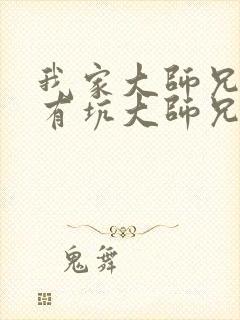 我家大師兄
有坑大師兄
鬼舞